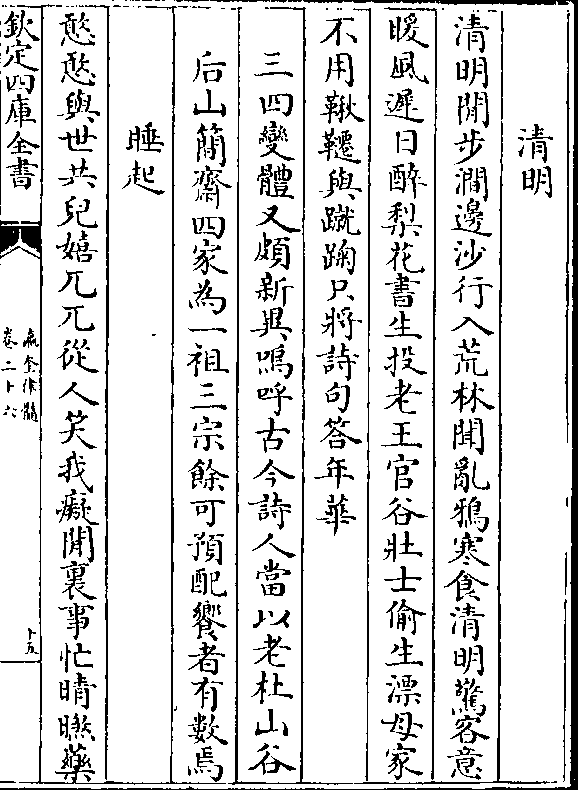 清明
清明閒步澗邊沙行入荒林聞亂鴉寒食清明驚客意
暖風遲日醉梨花書生投老王官谷壯士偷生漂母家
不用鞦韆與蹴踘只將詩句答年華
三四變體又頗新異嗚呼古今詩人當以老杜山谷
后山簡齋四家為一祖三宗餘可預配饗者有數焉
睡起
憨憨與世共兒嬉兀兀從人笑我癡閒裏事忙晴㬠藥
欽定四庫全書
瀛奎律髓
卷二十六
十五